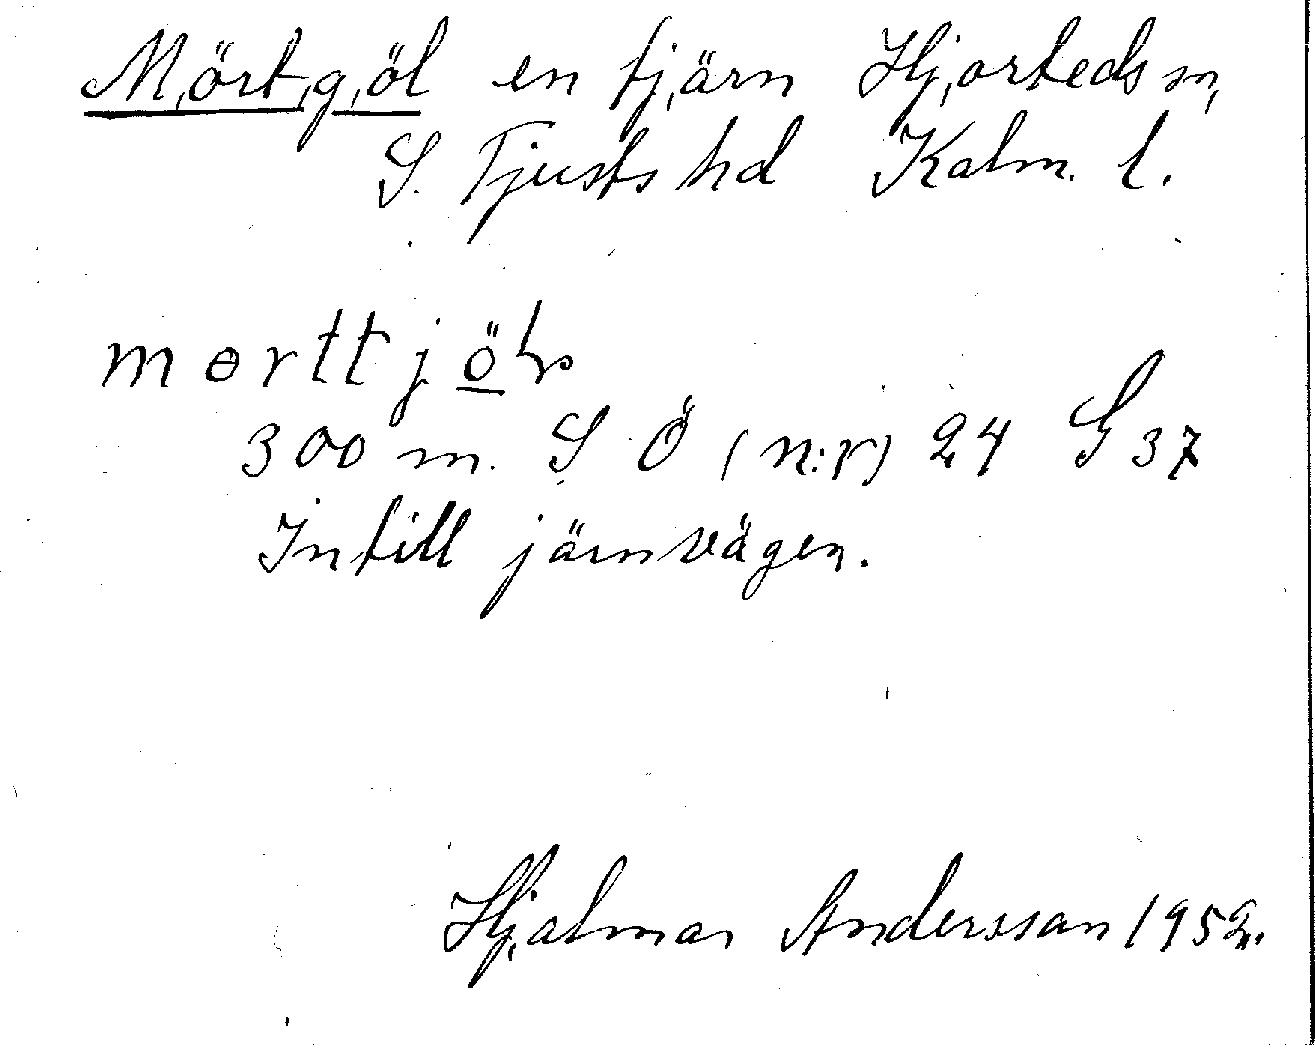 Mörtgöl en tjärn Hjorteds sn,
S. Tjusts hd Kalm. l.
mɵrttjöl
300 m. S Ö (n:r) 24 G 37
Intill järnvägen.
Hjalmar Andersson 1952.